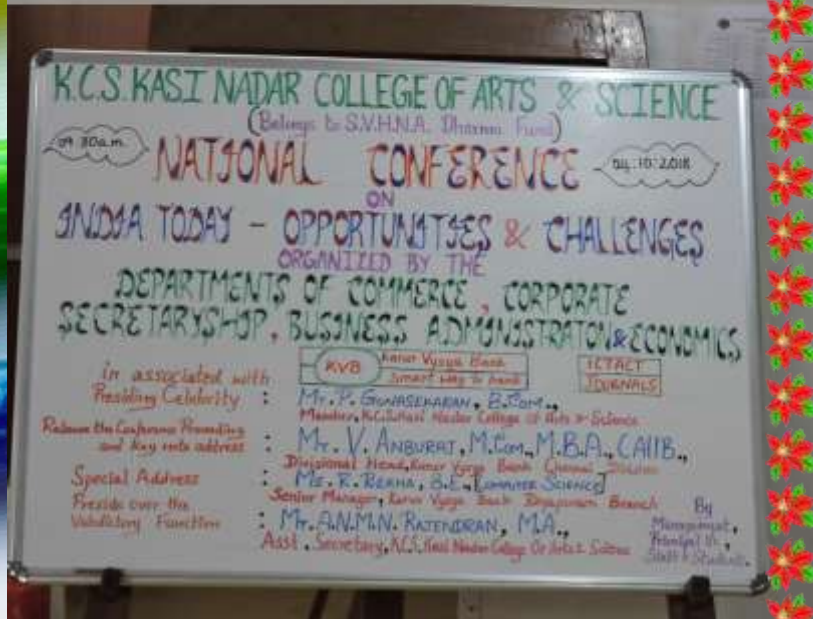 K.C.S. KASI NADAR COLLEGE OF ARTS & SCIENCE
(Belongs to S.V.H.N.A. Dharma Fund)
09.30a.m.
NATIONAL CONFERENCE
04.10.2018
ON
INDIA TODAY - OPPORTUNITIES & CHALLENGES
ORGANIZED BY THE
DEPARTMENTS OF COMMERCE, CORPORATE
SECRETARYSHIP, BUSINESS ADMINISTRATON & ECONOMICS
in associated with
KVB
Karur Vysya Bank
Smart way to bank
ICTACT
JOURNALS
Presiding Celebrity : Mr. P. GUNASEKARAN, B.Com.,
Member, K.C.S. Kasi Nadar College of Arts & Science
Release the Conference Proceeding
and Key note address : Mr. V. ANBURAJ, M.Com., M.B.A., CAIIB.,
Divisional Head, Karur Vysya Bank Chennai Division
Special Address : Ms. R. REKHA, B.E., [COMPUTER SCIENCE]
Senior Manager, Karur Vysya Bank Royapuram Branch
Preside over the
Valedictory Function : Mr. A.N.M.N. RAJENDRAN, M.A.,
Asst. Secretary, K.C.S. Kasi Nadar College Of Arts & Science
By
Management,
Principal
Staff & Students.